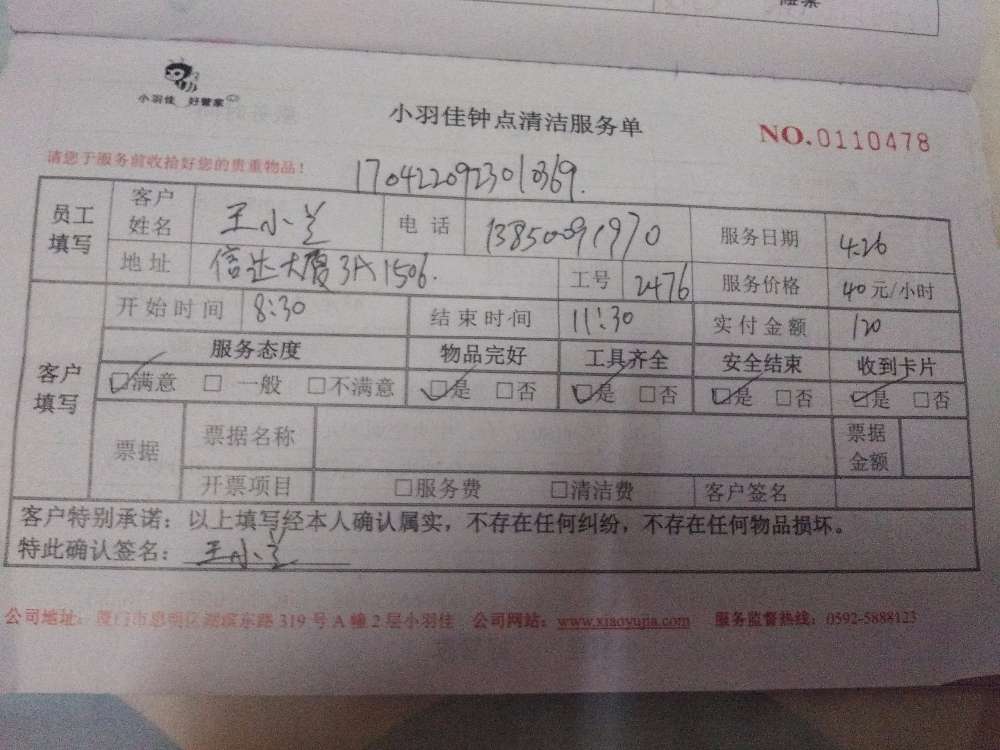 小羽佳 好管家
小羽佳钟点清洁服务单
NO.0110478
请您于服务前收拾好您的贵重物品！
1704220923010369.
员工填写 客户姓名 王小兰 电话 13850091970 服务日期 4.26
地址 信达大厦3A1506. 工号 2476 服务价格 40元/小时
客户填写 开始时间 8:30 结束时间 11:30 实付金额 120
服务态度 物品完好 工具齐全 安全结束 收到卡片
☑满意 □一般 □不满意 ☑是 □否 ☑是 □否 ☑是 □否 ☑是 □否
票据 票据名称 票据金额
开票项目 □服务费 □清洁费 客户签名
客户特别承诺：以上填写经本人确认属实，不存在任何纠纷，不存在任何物品损坏。
特此确认签名：王小兰
公司地址：厦门市思明区湖滨东路319号A幢2层小羽佳 公司网站：www.xiaoyujia.com 服务监督热线：0592-5888123